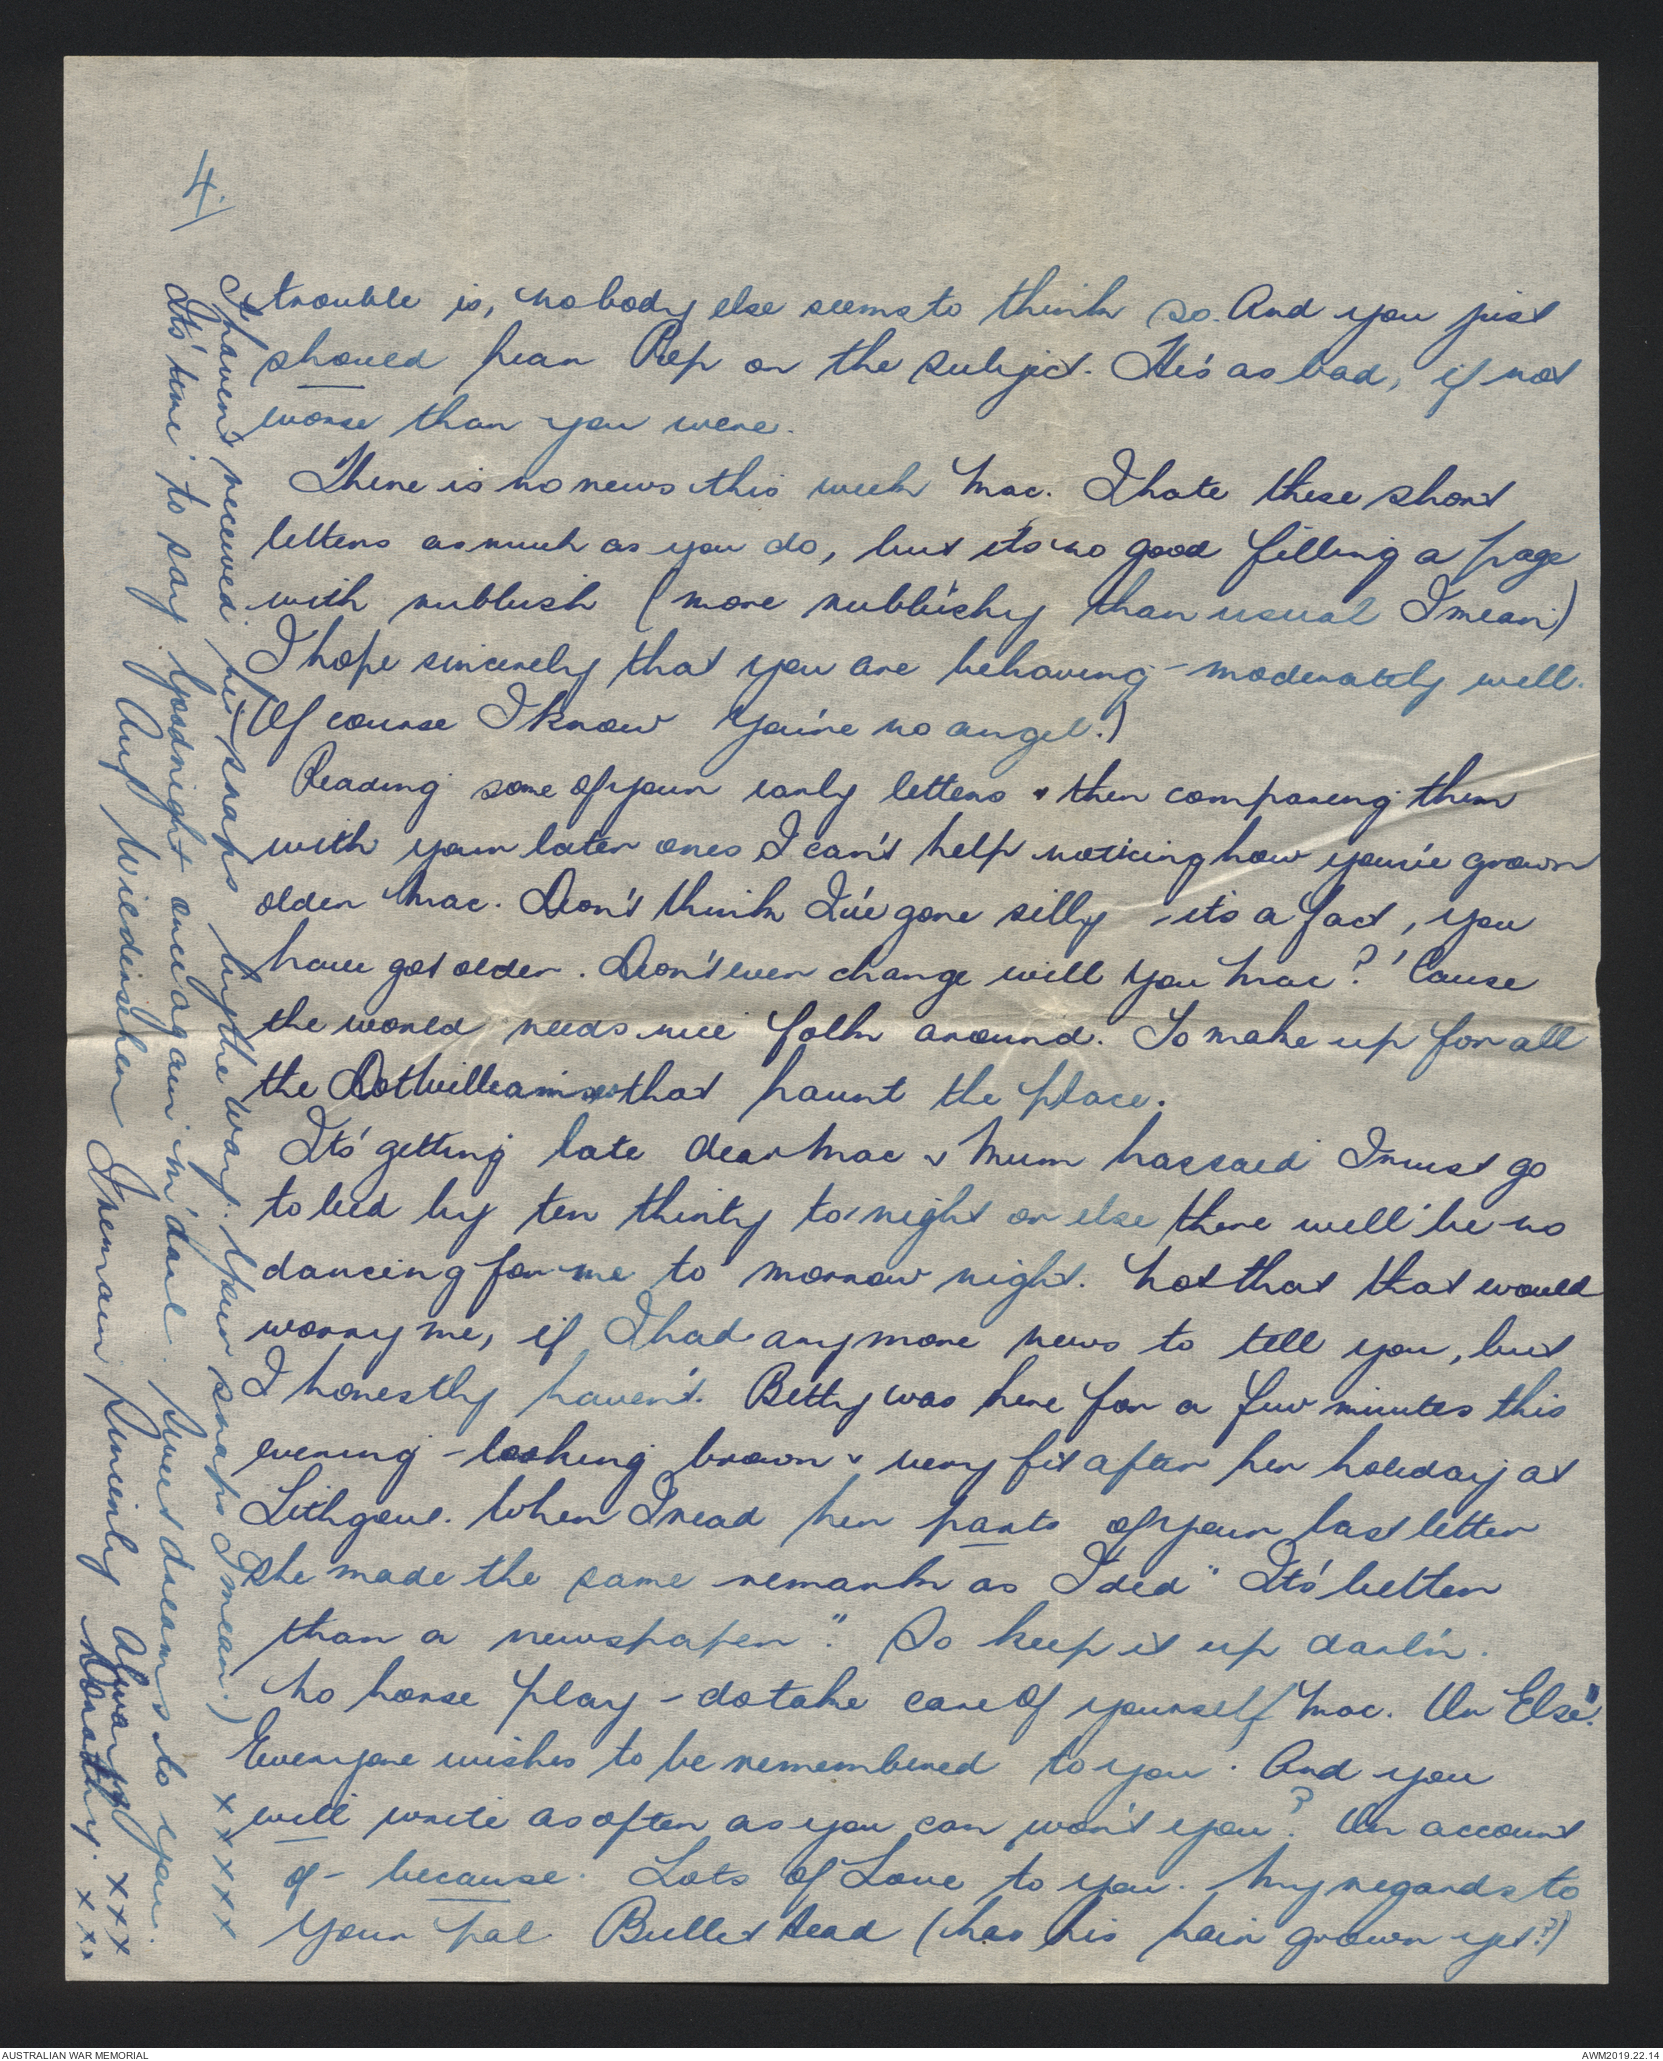 4/
trouble is, nobody else seems to think so. And you just
should hear Pep on the subject. He's as bad, if not
worse than you were.
There is no news this week Mac. I hate these short
letters as much as you do, but it's no good filling a page
with rubbish (more rubbishy than usual I mean)
I hope sincerely that you are behaving - moderately well.
(Of course I know you're no angel.)
Reading some of your early letters & then comparing them
with your later ones I can't help noticing how you've grown
older Mac. Don't think I've gone silly - it's a fact, you
have got older. Don't ever change will you Mac? 'Cause
the world needs nice folk around. To make up for all
the Dot Williamses that haunt the place.
It's getting late dear Mac & Mum has said I must go
to bed by ten thirty to-night or else there will be no
dancing for me to morrow night. Not that that would
worry me, if I had any more news to tell you, but
I honestly haven't. Betty was here for a few minutes this
evening - looking brown & very fit after her holiday at
Lithgow. When I read her parts of your last letter
she made the same remark as I did "It's better
than a newspaper". So keep it up darl'n.
No horse play - do take care of yourself Mac. "Or Else".
Everyone wishes to be remembered to you. And you
will write as often as you can won't you? On account
of - because. Lots of Love to you. My regards to
your pal Bullet Head (has his hair grown yet?)
I haven't received his snaps by the way. (Your snaps I mean.) x x x x x
It's time to say goodnight once again m'darl. Sweet dreams to you.
Auf Wiedersehen I remain Sincerely Always x x x
Dorothy. x x x
AUSTRALIAN WAR MEMORIAL
AWM2019.22.14